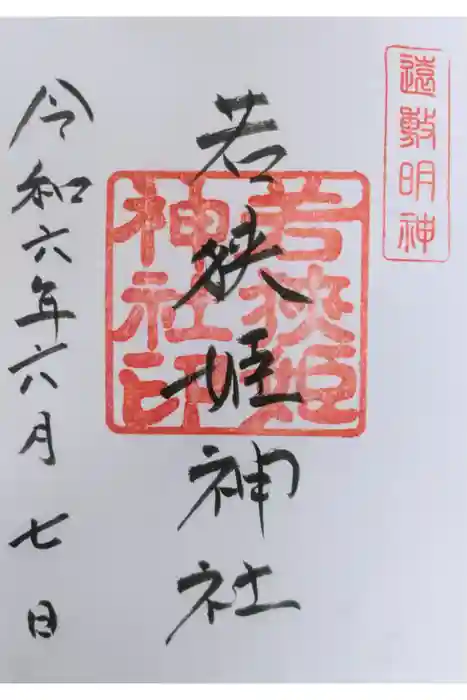 遠敷明神
若狭姫神社
若狭姫
神社印
令和六年六月七日